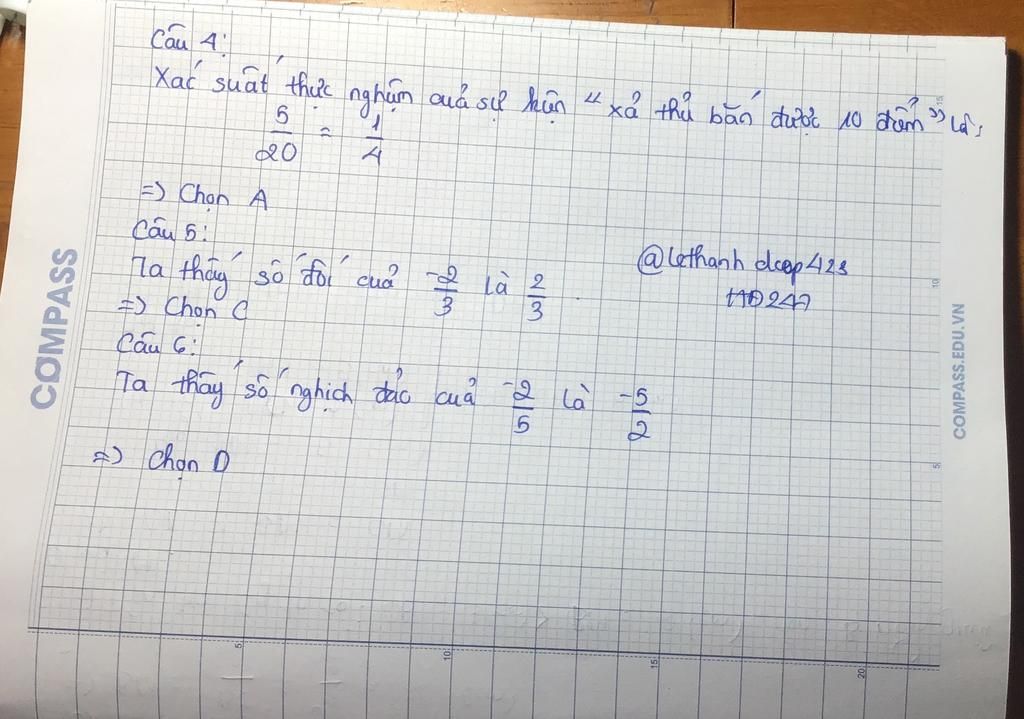 Câu 4:
Xác suất thực nghiệm của sự kiện "xạ thủ bắn được 10 điểm" là:
5/20 = 1/4
=) Chọn A
Câu 5:
Ta thấy số đối của -2/3 là 2/3.
=) Chọn C
Câu 6:
Ta thấy số nghịch đảo của -2/5 là -5/2
=) Chọn D
HD247
COMPASS
COMPASS.EDU.VN
5
10
15
20
5
10
15